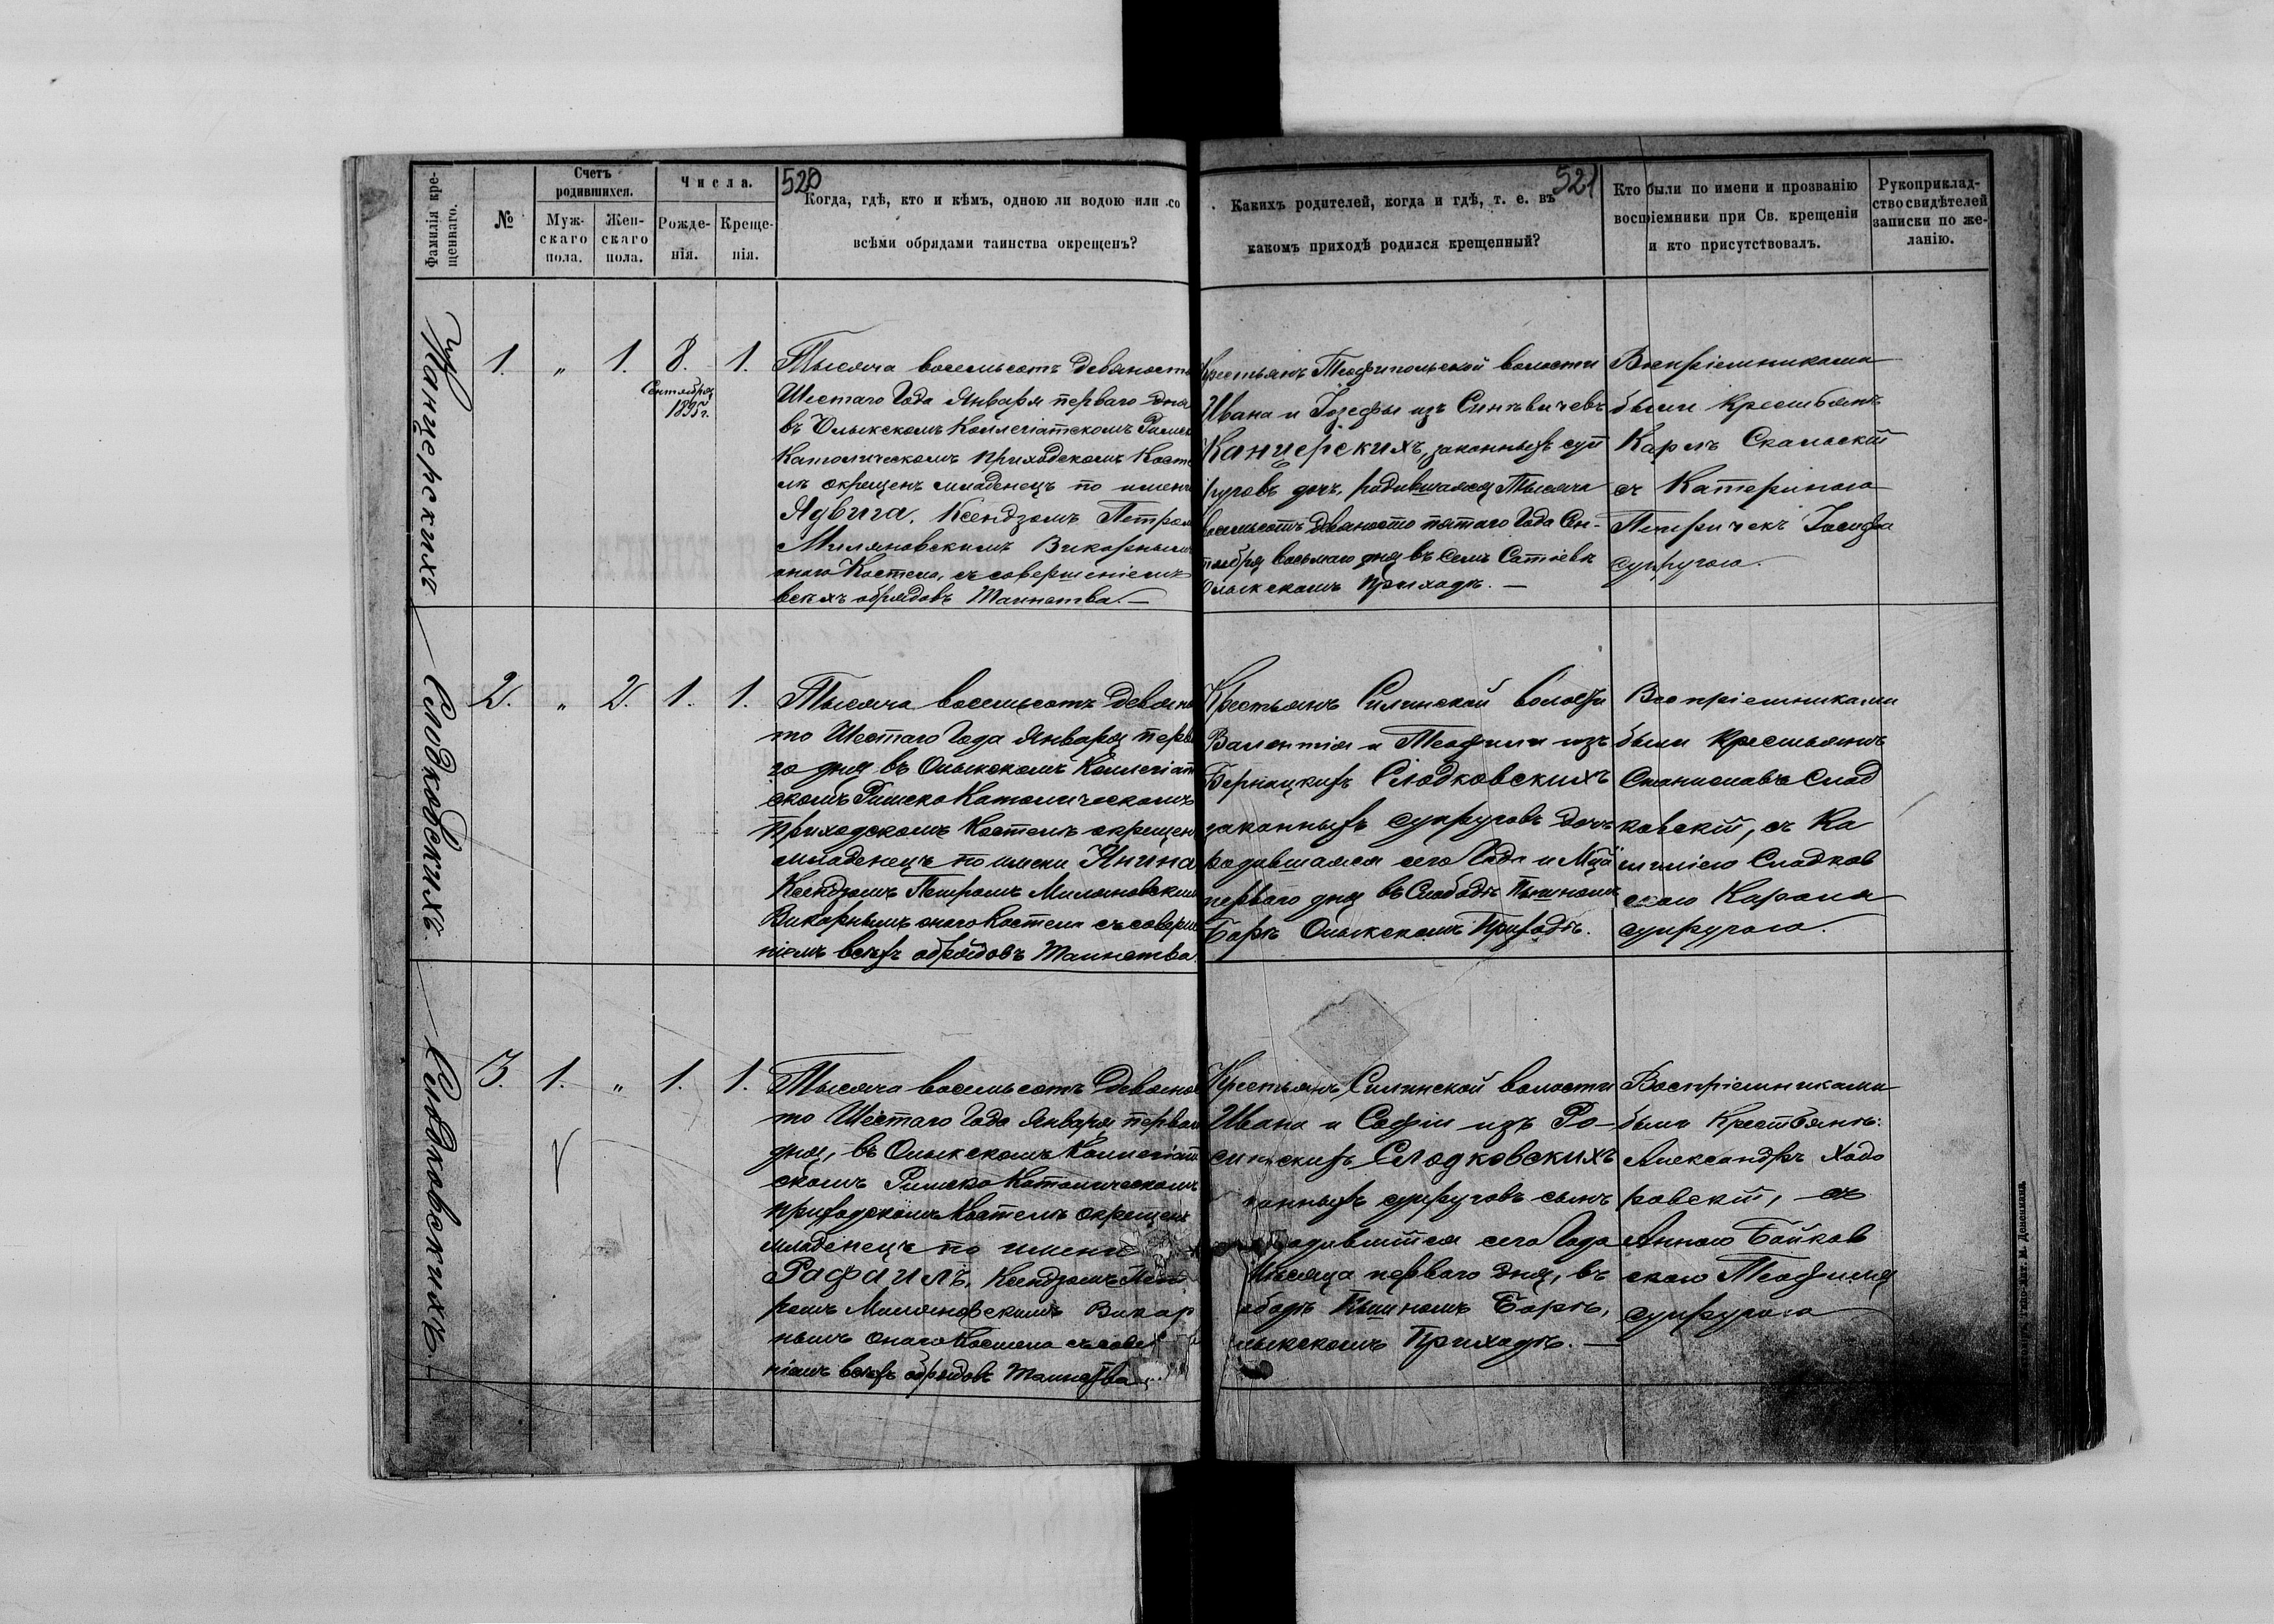 520
521
Фамилія кре-
щеннаго.
№
Счетъ
родившихся.
Муж-
скаго
пола.
Жен-
скаго
пола.
Числа.
Рожде-
нія.
Креще-
нія.
Когда, гдѣ, кто и кѣмъ, одною ли водою или со
всѣми обрядами таинства окрещенъ?
Какихъ родителей, когда и гдѣ, т. е. въ
какомъ приходѣ родился крещенный?
Кто были по имени и прозванію
воспріемники при Св. крещеніи
и кто присутствовалъ.
Рукоприклад-
ство свидѣтелей
записки по же-
ланію.
Канцерскихъ
1.
"
1.
8.
Сентября
1895 г.
1.
Тысяча восемьсотъ девяносто
Шестаго Года Января перваго дня
въ Олыкскомъ Коллегіатскомъ Римско
Католическомъ приходскомъ Косте
лѣ окрещенъ младенецъ по имени
Ядвига. Ксендзомъ Петромъ
Миляновскимъ Викарнымъ
онаго Костела, съ совершеніемъ
всѣхъ обрядовъ Таинства. —
Крестьянъ Теофипольской волости
Ивана и Іозефы изъ Синкевичевъ
Канцерскихъ, законныхъ суп
руговъ дочь, родившаяся Тысяча
восемьсотъ девяносто пятаго Года Сен-
тября восьмаго дня въ селѣ Сатіевѣ
Олыкскомъ Приходѣ. —
Воспріемниками
были крестьянъ
Карлъ Скальскій
съ Катериною
Петричекъ Іосифа
супругою.
Слодковскихъ
2.
"
2.
1.
1.
Тысяча восемьсотъ девянос
то Шестаго Года Января перва
го дня въ Олыкскомъ Коллегіат
скомъ Римско Католическомъ
приходскомъ Костелѣ окрещенъ
младенецъ по имени Янина
Ксендзомъ Петромъ Миляновскимъ
Викарнымъ онаго Костела съ соверше
ніемъ всѣхъ обрядовъ Таинства.
Крестьянъ Силинской волости
Валентія и Теофили изъ
Бернацкихъ Слодковскихъ
законныхъ супруговъ дочь
родившаяся сего Года и М-ца
перваго дня въ Слободѣ Пышномъ
Боркѣ Олыкскомъ Приходѣ.
Воспріемниками
были крестьянъ
Станиславъ Слод
ковскій, съ Ка
миліею Слодков
скою Кароля
супругою.
Слодковскихъ
3.
1.
"
1.
1.
Тысяча восемьсотъ девянос
то Шестаго Года Января перваго
дня, въ Олыкскомъ Коллегіат
скомъ Римско Католическомъ
приходскомъ Костелѣ окрещенъ
младенецъ по имени
Рафаилъ, Ксендзомъ Пет
ромъ Миляновскимъ Викар
нымъ онаго Костела съ совер
ніемъ всѣхъ обрядовъ Таинства
Крестьянъ Силинской волости
Ивана и Софіи изъ Ро-
синскихъ Слодковскихъ
конныхъ супруговъ сынъ
родившійся сего Года
Мѣсяца перваго дня, въ
ободѣ Пышномъ Боркѣ,
лыкскомъ Приходѣ. —
Воспріемниками
были Крестьянъ:
Александръ Ходо
ровскій, съ
Анною Байков
скою Теофиля
супругою